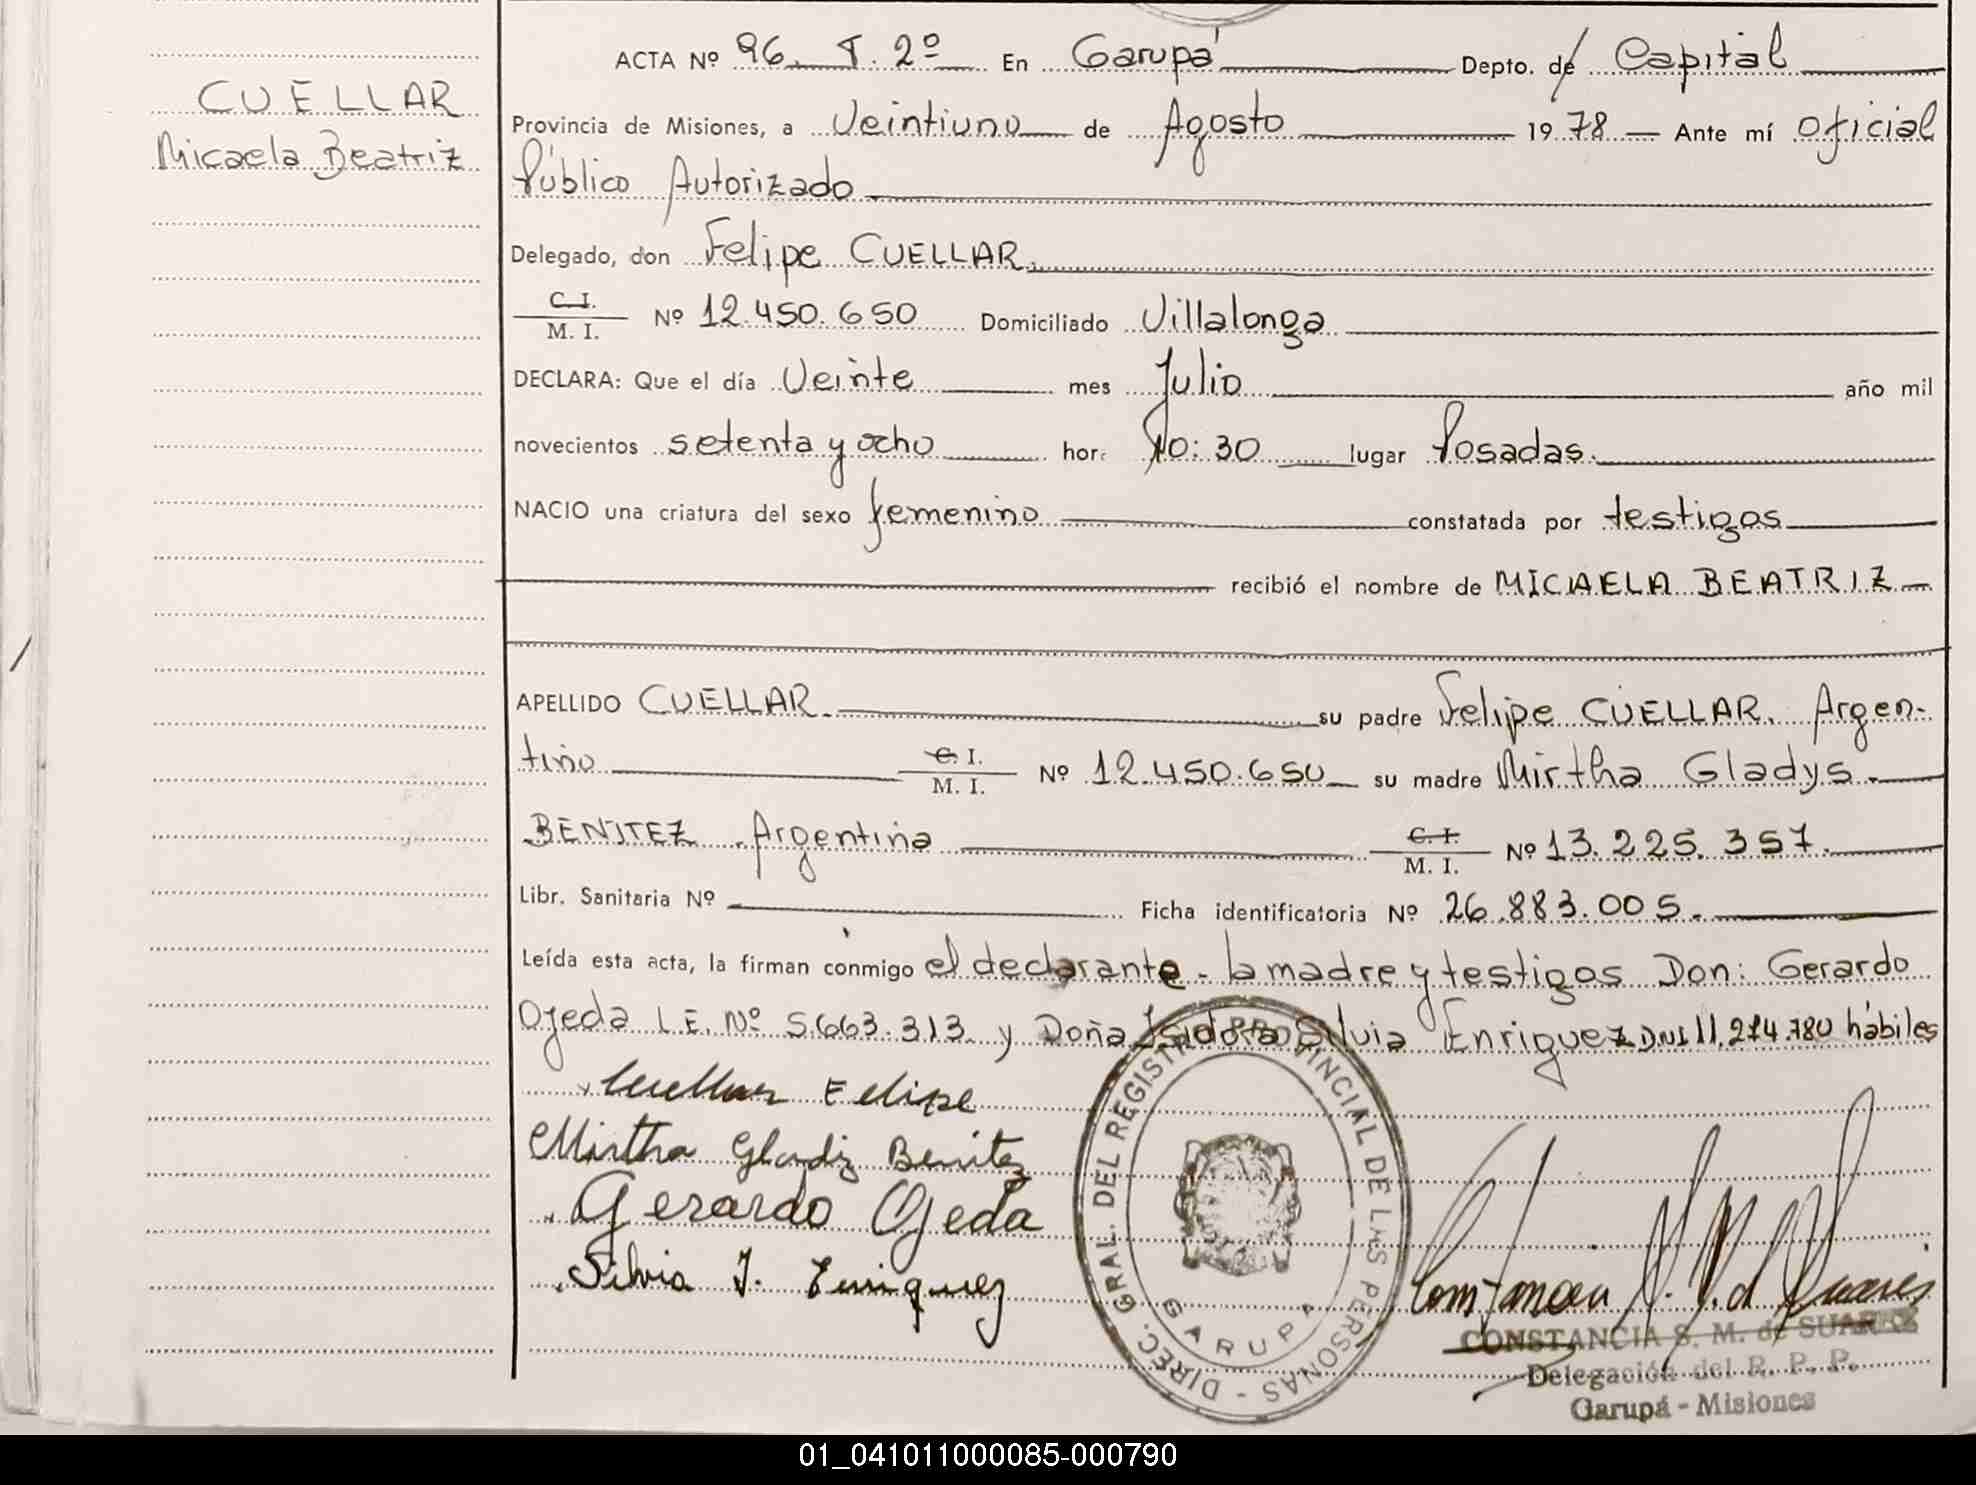 CUELLAR
Micaela Beatriz
ACTA Nº 96. T. 2º En Garupá Depto. de Capital
Provincia de Misiones, a Veintiuno de Agosto 1978 — Ante mí Oficial
Público Autorizado
Delegado, don Felipe CUELLAR.
C. I.
M. I. Nº 12.450.650 Domiciliado Villalonga
DECLARA: Que el día Veinte mes Julio año mil
novecientos setenta y ocho hor: 10:30 lugar Posadas.
NACIO una criatura del sexo femenino constatada por testigos
recibió el nombre de MICAELA BEATRIZ —
APELLIDO CUELLAR. su padre Felipe CUELLAR. Argen-
tino C. I.
M. I. Nº 12.450.650 su madre Mirtha Gladys.
BENITEZ Argentina C. I.
M. I. Nº 13.225.357.
Libr. Sanitaria Nº Ficha identificatoria Nº 26.883.005.
Leída esta acta, la firman conmigo el declarante - la madre y testigos Don: Gerardo
Ojeda L.E. Nº 5.663.313 y Doña Isidora Silvia Enriquez DNI 11.274.780 hábiles
Cuellar Felipe
Mirtha Gladiz Benitez
Gerardo Ojeda
Silvia I. Enriquez
DIREC. GRAL. DEL REGISTRO PROVINCIAL DE LAS PERSONAS -
GARUPA
CONSTANCIA S. M. de SUAREZ
Delegación del R. P. P.
Garupá - Misiones
01_041011000085-000790